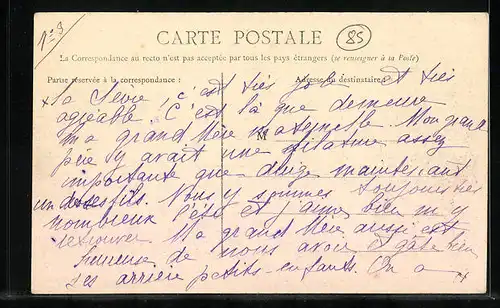 1=9
CARTE POSTALE
85
La Correspondance au recto n'est pas acceptée par tous les pays étrangers (se renseigner à la Poste)
Partie réservée à la correspondance :
Adresse du destinataire
+ La Sèvre, c'est très joli et très
agréable. C'est là que demeure
ma grand Mère maternelle. Mon grand
père y avait une filature assez
importante que dirige maintenant
un de ses fils. Nous y sommes toujours très
nombreux l'été et j'aime bien m'y
retrouver. Ma grand Mère aussi est
heureuse de nous avoir gâte bien
ses arrière petits-enfants. On a